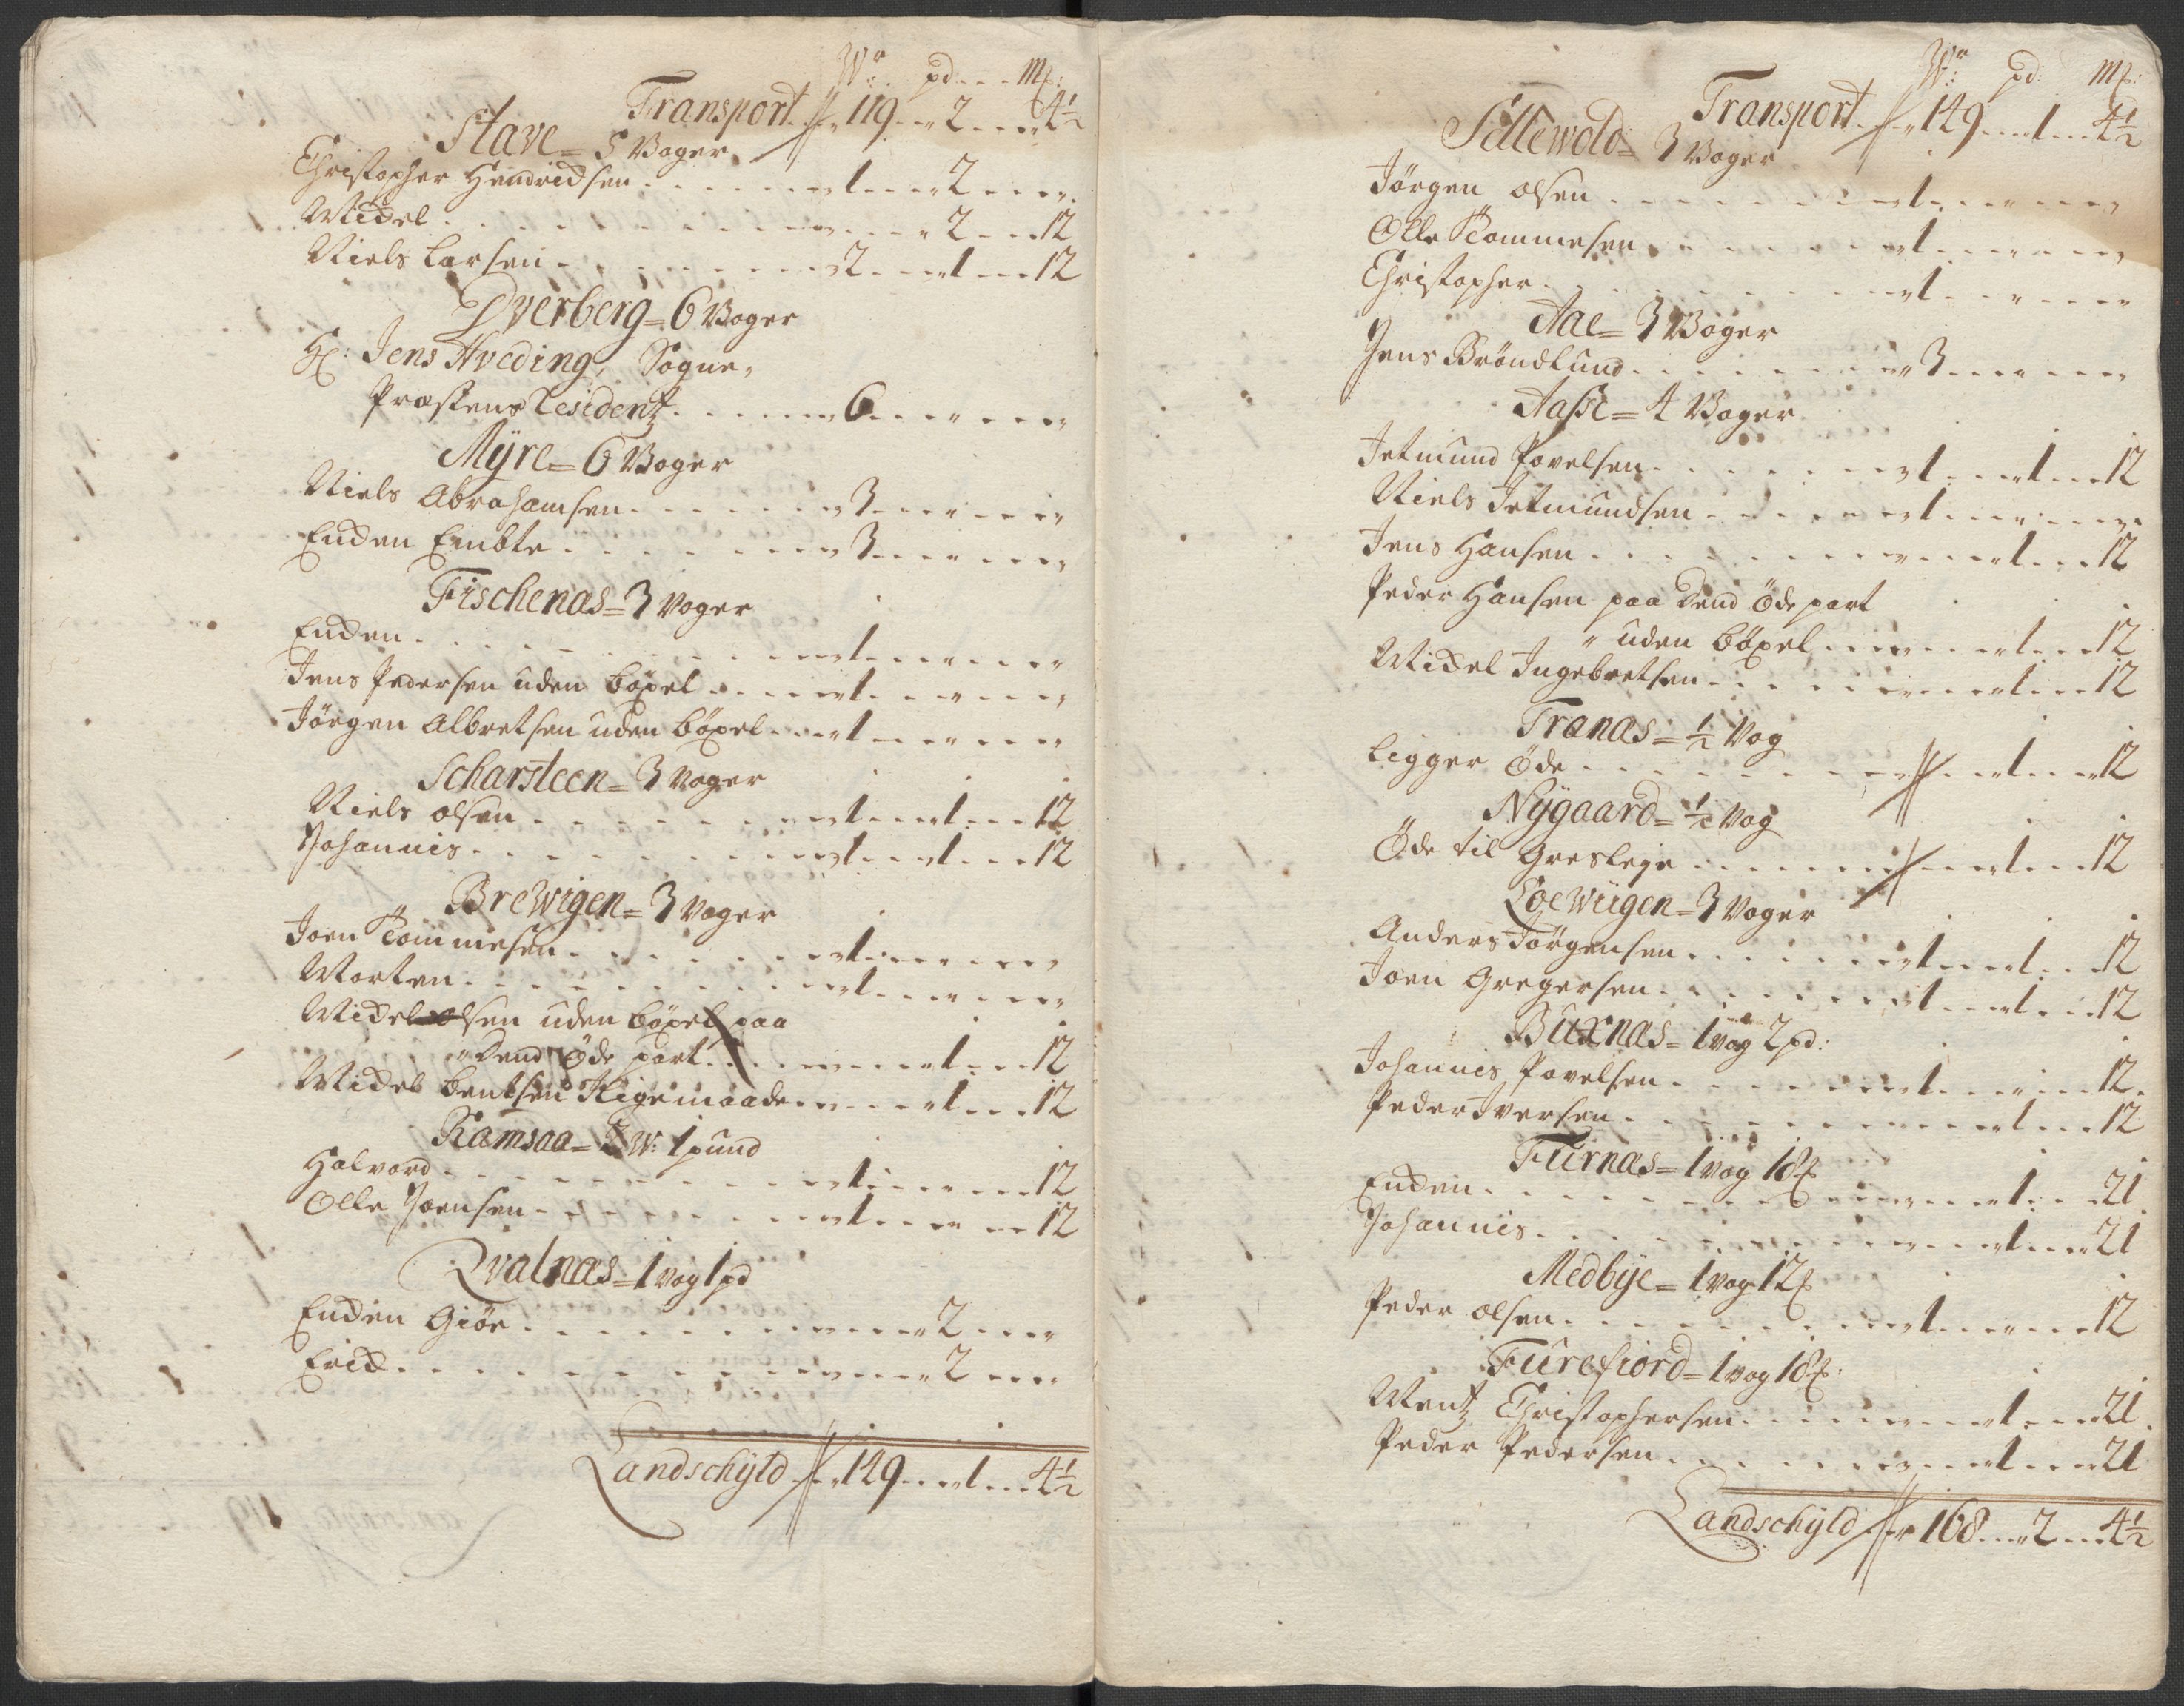 Wr: pd: mk:
Transport // 119 " 2 " 4 1/2
Stave = 5 Woger
Christopher Hendrichsen " 1 " 2 "
Michel " " 2 " 12
Niels Larsen " 2 " 1 " 12
Dverberg = 6 Woger
Hr: Jens Hveding, Sogne,
Præstens Residentz " 6 " "
Myre = 6 Woger
Niels Abrahamsen " 3 " "
Enchen Embte " 3 " "
Fischenæs = 3 Woger
Enchen " 1 " "
Jens Pedersen uden böxel " 1 " "
Jörgen Albretsen uden böxel " 1 " "
Scharsteen = 3 Woger
Niels olsen " 1 " 1 " 12
Johannis " 1 " 1 " 12
Brewigen = 3 Woger
Joen Tommesen " 1 " "
Morten " 1 " "
Michel olsen uden böxel paa
" dend Öde part " " 1 " 12
Michel bentsen Ligemaade " " 1 " 12
Ramsaa = 2 W: 1 pund
Halvord " 1 " " 12
Olle Joensen " 1 " " 12
Qvalnæs = 1 Wog 1 pd
Enchen Giör " " 2 "
Erich " " 2 "
Landschyld // 149 " 1 " 4 1/2
Wr: pd: mk:
Transport // 149 " 1 " 4 1/2
Sellewold = 3 Woger
Jörgen olsen " 1 " "
Olle Tommesen " 1 " "
Christopher " 1 " "
Aae = 3 Woger
Jens Bröndlund " 3 " "
Aasse = 4 Woger
Jetmund Povelsen " 1 " 1 " 12
Niels Jetmundsen " 1 " "
Jens Hansen " " 1 " 12
Peder Hansen paa dend Öde part
" uden böxel " " 1 " 12
Michel Ingebretsen " " 1 " 12
Tranæs = 1/2 Wog
Ligger Öde // " 1 " 12
Nygaard = 1/2 Wog
Öde til Græsleye // " 1 " 12
Loewiigen = 3 Woger
Anders Jörgensen " 1 " 1 " 12
Joen Gregersen " 1 " 1 " 12
Buxnæs = 1 wog 2 pd:
Johannis Povelsen " 1 " " 12
Peder Iversen " " 1 " 12
Furnæs = 1 wog 18 mk
Enchen " " 1 " 21
Johannis " " 1 " 21
Medbye = 1 wog 12 mk
Peder olsen " 1 " " 12
Furefiord = 1 wog 18 mk:
Mentz Christophersen " " 1 " 21
Peder Pedersen " " 1 " 21
Landschyld // 168 " 2 " 4 1/2